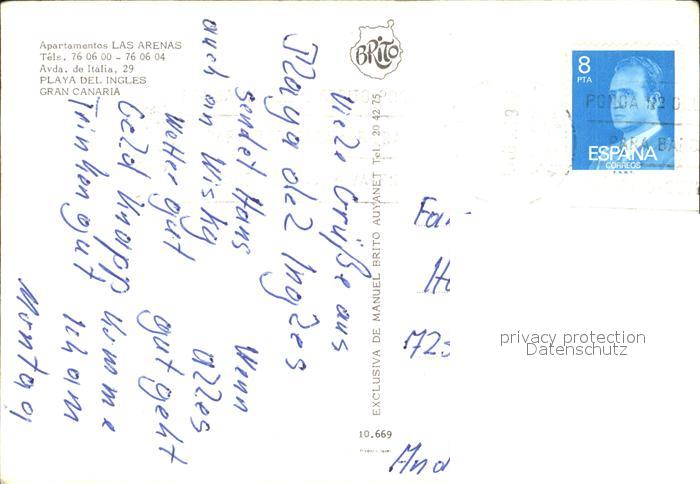 Apartamentos LAS ARENAS
Téls. 76 06 00 - 76 06 04
Avda. de Italia, 29
PLAYA DEL INGLES
GRAN CANARIA
BRITO
8
PTA
ESPAÑA
CORREOS
Viele Grüße aus
Playa del Ingles
sendet Hans Wenn
auch an Wisky alles
Wetter gut gut geht
Geld knapp komme
Trinken gut ich am
Montag
EXCLUSIVA DE MANUEL BRITO AUYANET Tel. 20 42 75
10.669
Fa
H
72
And
privacy protection
Datenschutz